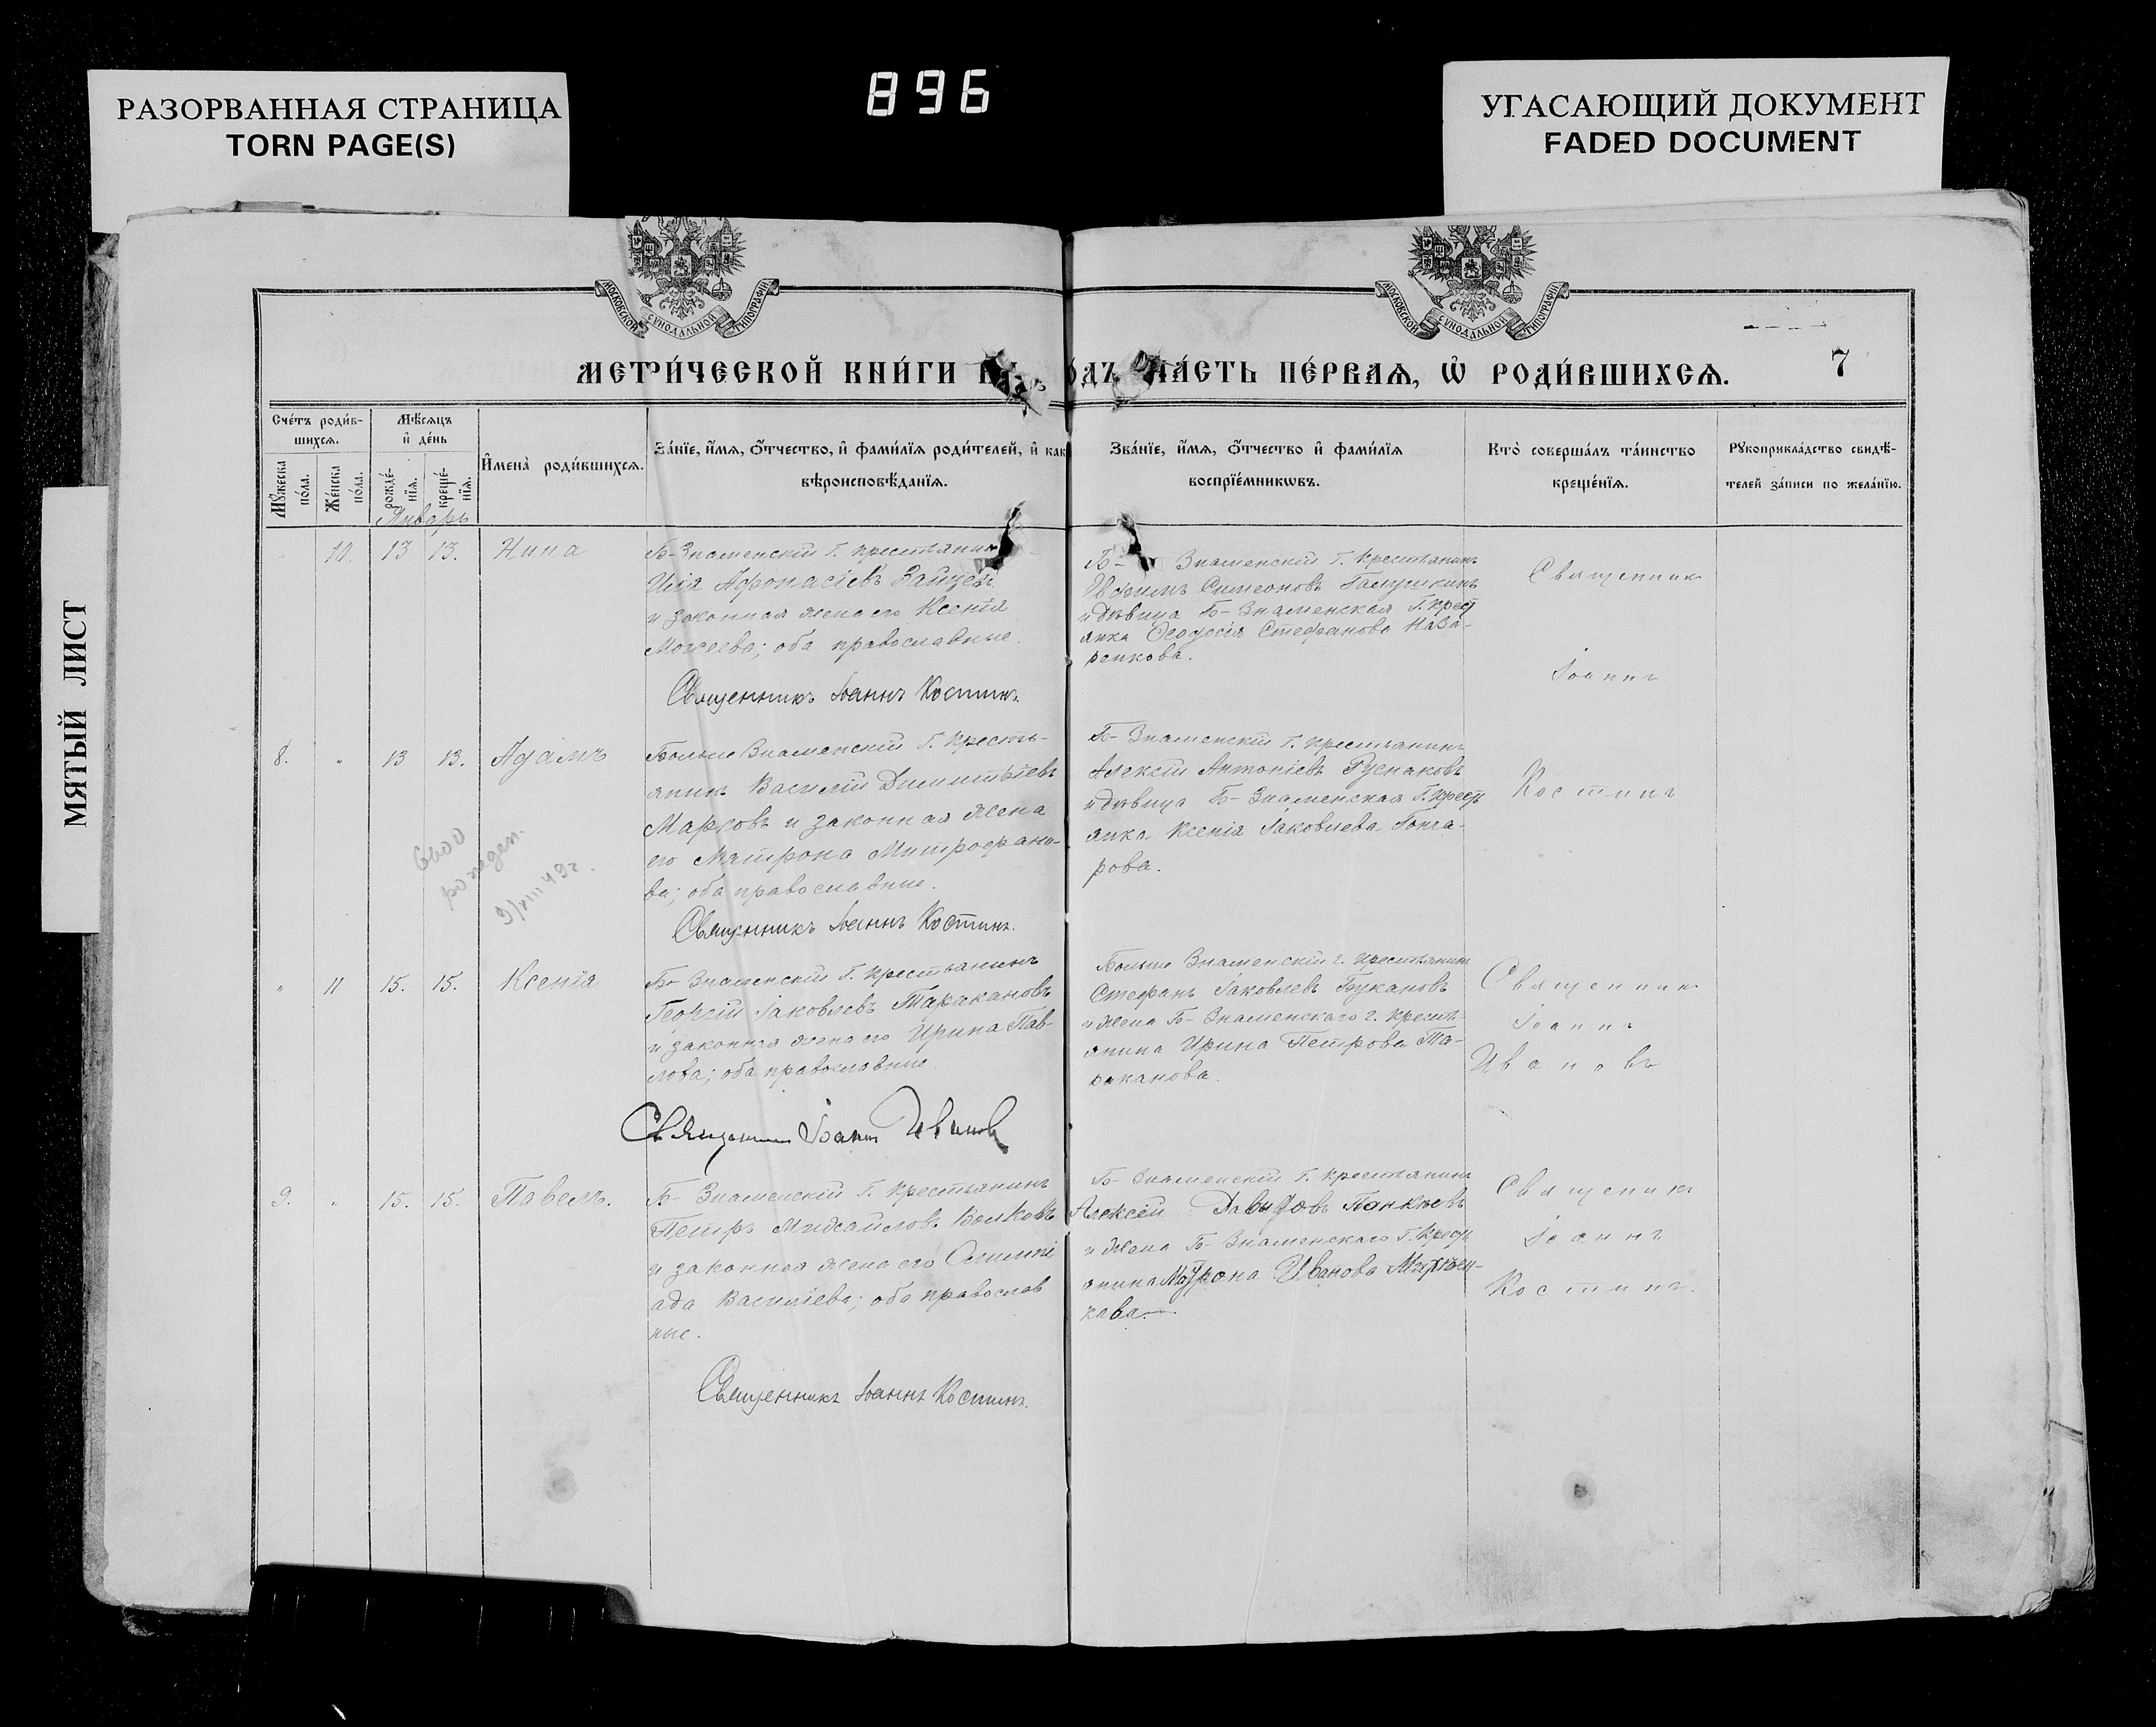 РАЗОРВАННАЯ СТРАНИЦА
TORN PAGE(S)
896
УГАСАЮЩИЙ ДОКУМЕНТ
FADED DOCUMENT
МЯТЫЙ ЛИСТ
МОСКОВСКОЙ СУНОДАЛЬНОЙ ТИПОГРАФІИ
МОСКОВСКОЙ СУНОДАЛЬНОЙ ТИПОГРАФІИ
МЕТРИ́ЧЕСКОЙ КНИ́ГИ ЧА́СТЬ ПЕ́РВАЯ, Ѡ҆ РОДИ́ВШИХСЯ.
7
Сче́тъ роди́в-
шихся.
Мѣ́сяцъ
и҆ де́нь
Мꙋ́жеска по́ла.
Же́нска по́ла.
рожде́-нїя.
креще́-нїя.
И҆мена̀ роди́вшихся.
Зва́нїе, и҆́мя, ѻ҆́тчество, и҆ фами́лїя роди́телей, и҆ как
вѣроисповѣ́данїя.
Зва́нїе, и҆́мя, ѻ҆́тчество и҆ фами́лїя
воспрїе́мникѡвъ.
Кто̀ соверша́лъ та́инство
креще́нїя.
Рꙋкоприкла́дство свидѣ́-
телей за́писи по жела́нїю.
Январь
10. 13 13. Нина
Б-Знаменскій Г. крестьянин
Илія Афонасіевъ Зайцевъ
и законная жена его Ксенія
Моисеева; оба православные.
Священникъ Іоаннъ Костинъ.
Б- Знаменскій Г. крестьянинъ
Симеоновъ Галушкинъ
и дѣвица Б-Знаменская Г. крест
янка Ѳеодосія Стефанова Наза-
ренкова.
Священник
Іоаннъ
Костинъ
8. " 13 13. Адамъ
Больше Знаменскій Г. кресть-
янин Василій Димитріевъ
Марковъ и законная жена
его Матрона Митрофано-
ва; оба православные.
Священникъ Іоаннъ Костинъ.
Б- Знаменскій Г. крестьянинъ
Алексій Антоніевъ Руснаковъ
и дѣвица Б-Знаменская Г. крест
янка Ксенія Іаковлева Гонча-
рова.
9/VIII 49г.
" 11 15. 15. Ксенія
Б- Знаменскій Г. крестьянинъ
Георгій Іаковлевъ Таракановъ
и законная жена его Ирина Пав-
лова; оба православные
Священникъ Іоаннъ Ивановъ
Больше Знаменскій г. крестьянинъ
Стефанъ Іаковлевъ Букановъ
и жена Б-Знаменскаго г. кресть-
янина Ирина Петрова Та-
раканова.
Священник
Іоаннъ
Ивановъ
9. " 15. 15. Павелъ.
Б- Знаменскій Г. крестьянинъ
Петръ Михайловъ Волковъ
и законная жена его Олимпі
ада Василіева; оба православ
ные.
Священникъ Іоаннъ Костинъ.
Б- Знаменскій Г. крестьянинъ
Алексей Давыдовъ
и жена Б-Знаменскаго Г. крест
янина Иванова
кова.
Священик
Іоаннъ
Костинъ.